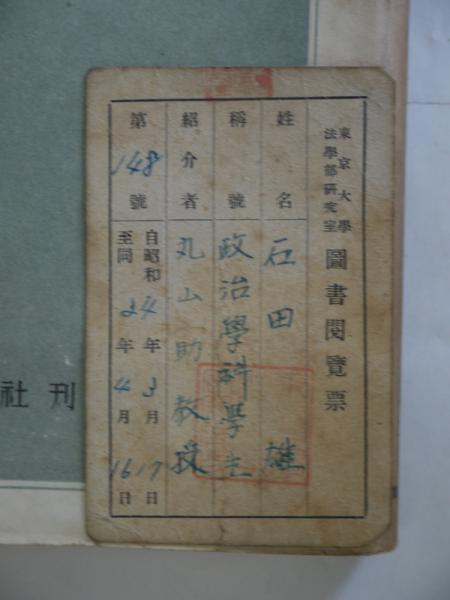 東京大學
法學部研究室
圖書閲覽票
姓名 石田 雄
稱號 政治學科學生
紹介者 丸山助教授
第148號
自昭和24年3月17日
至同 年4月16日
社刊